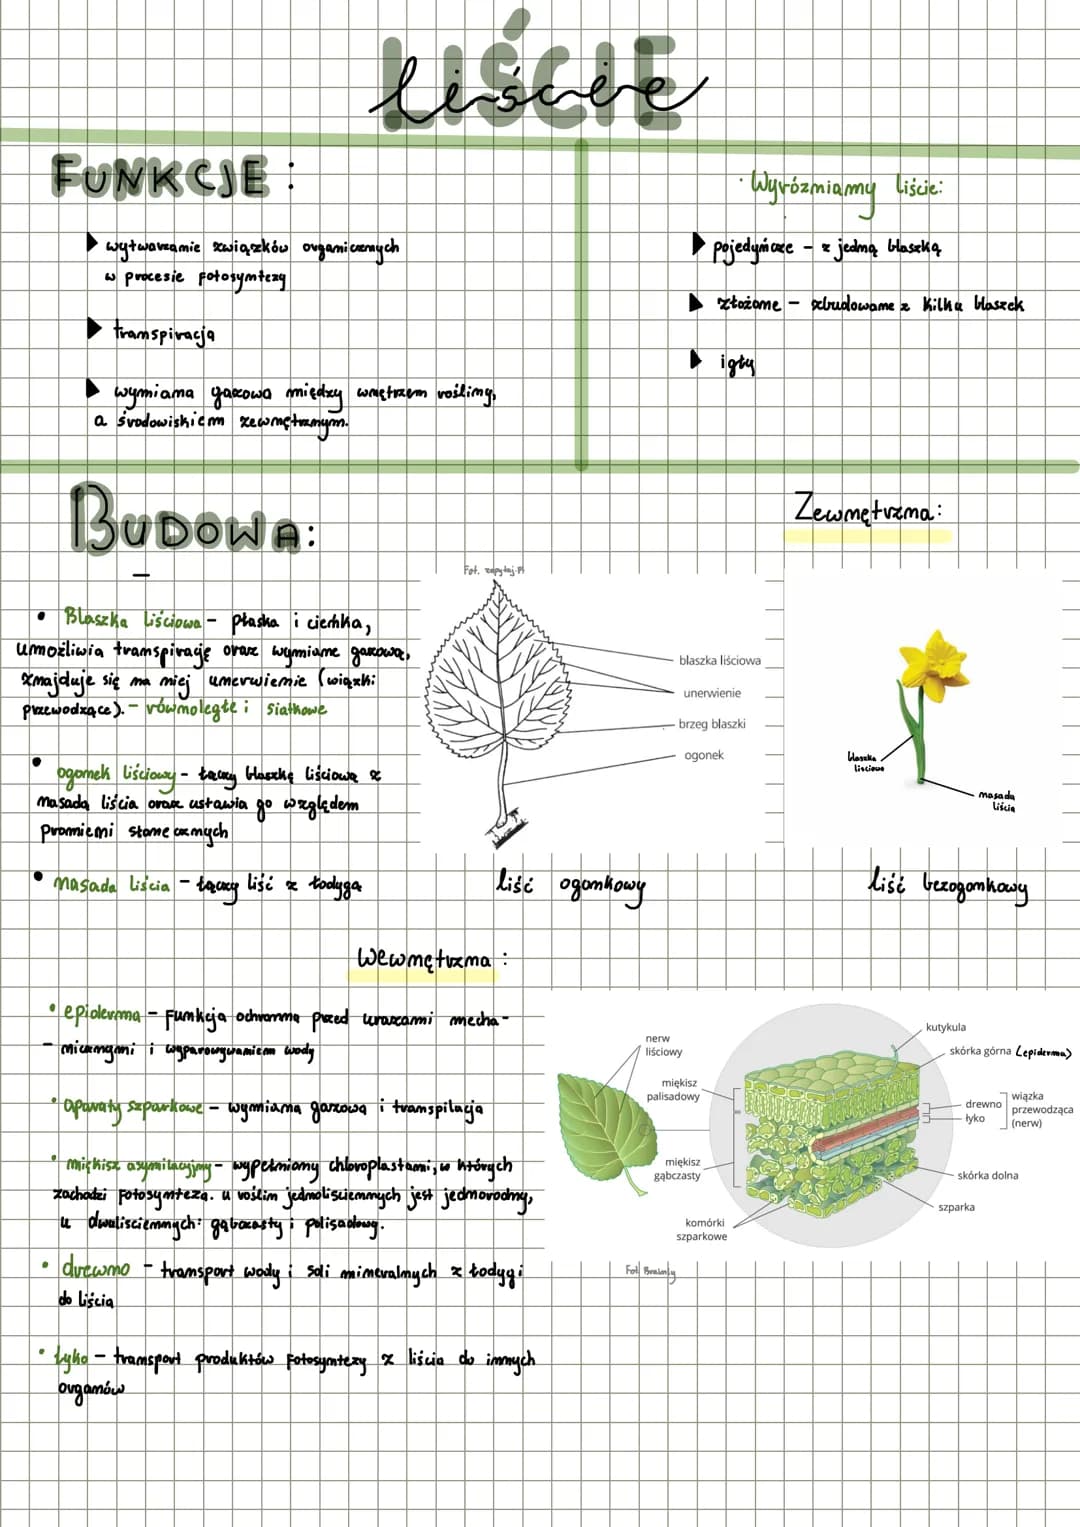 LIŚCIE
liście
FUNKCJE :
wytwarzanie związków organicznych
w procesie fotosyntezy
transpiracja
wymiana gazowa między wnętrzem rośliny,
a środowiskiem zewnętrznym.
Wyróżniamy liście:
pojedyńcze - z jedną blaszką
złożone - zbudowane z kilku blaszek
igły
BUDOWA:
Zewnętrzna:
• Blaszka liściowa - płaska i cienka,
umożliwia transpirację oraz wymianę gazową,
znajduje się na niej unerwienie (wiązki
przewodzące). - równoległe i siatkowe
• ogonek liściowy - łączy blaszkę liściową z
nasadą liścia oraz ustawia go względem
promieni słonecznych
• nasada liścia - łączy liść z łodygą
Fot. zapytaj.pl
blaszka liściowa
unerwienie
brzeg blaszki
ogonek
liść ogonkowy
blaszka
liściowa
nasada
liścia
liść bezogonkowy
Wewnętrzna :
• epiderma - funkcja ochronna przed urazami mecha-
- nicznymi i wyparowywaniem wody
• aparaty szparkowe - wymiana gazowa i transpilacja
• miękisz asymilacyjny - wypełniony chloroplastami, w których
zachodzi fotosynteza. u roślin jednoliściennych jest jednorodny,
u dwuliściennych: gąbczasty i polisadowy.
• drewno - transport wody i soli mineralnych z łodygi
do liścia
• łyko - transport produktów fotosyntezy z liścia do innych
organów
nerw
liściowy
miękisz
palisadowy
miękisz
gąbczasty
komórki
szparkowe
kutykula
skórka górna (epiderma)
drewno
łyko
wiązka
przewodząca
(nerw)
skórka dolna
szparka
Fot. Brainly